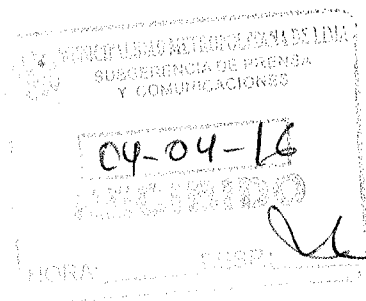 MUNICIPALIDAD METROPOLITANA DE LIMA
SUBGERENCIA DE PRENSA
Y COMUNICACIONES
04-04-16
RECIBIDO
HORA: